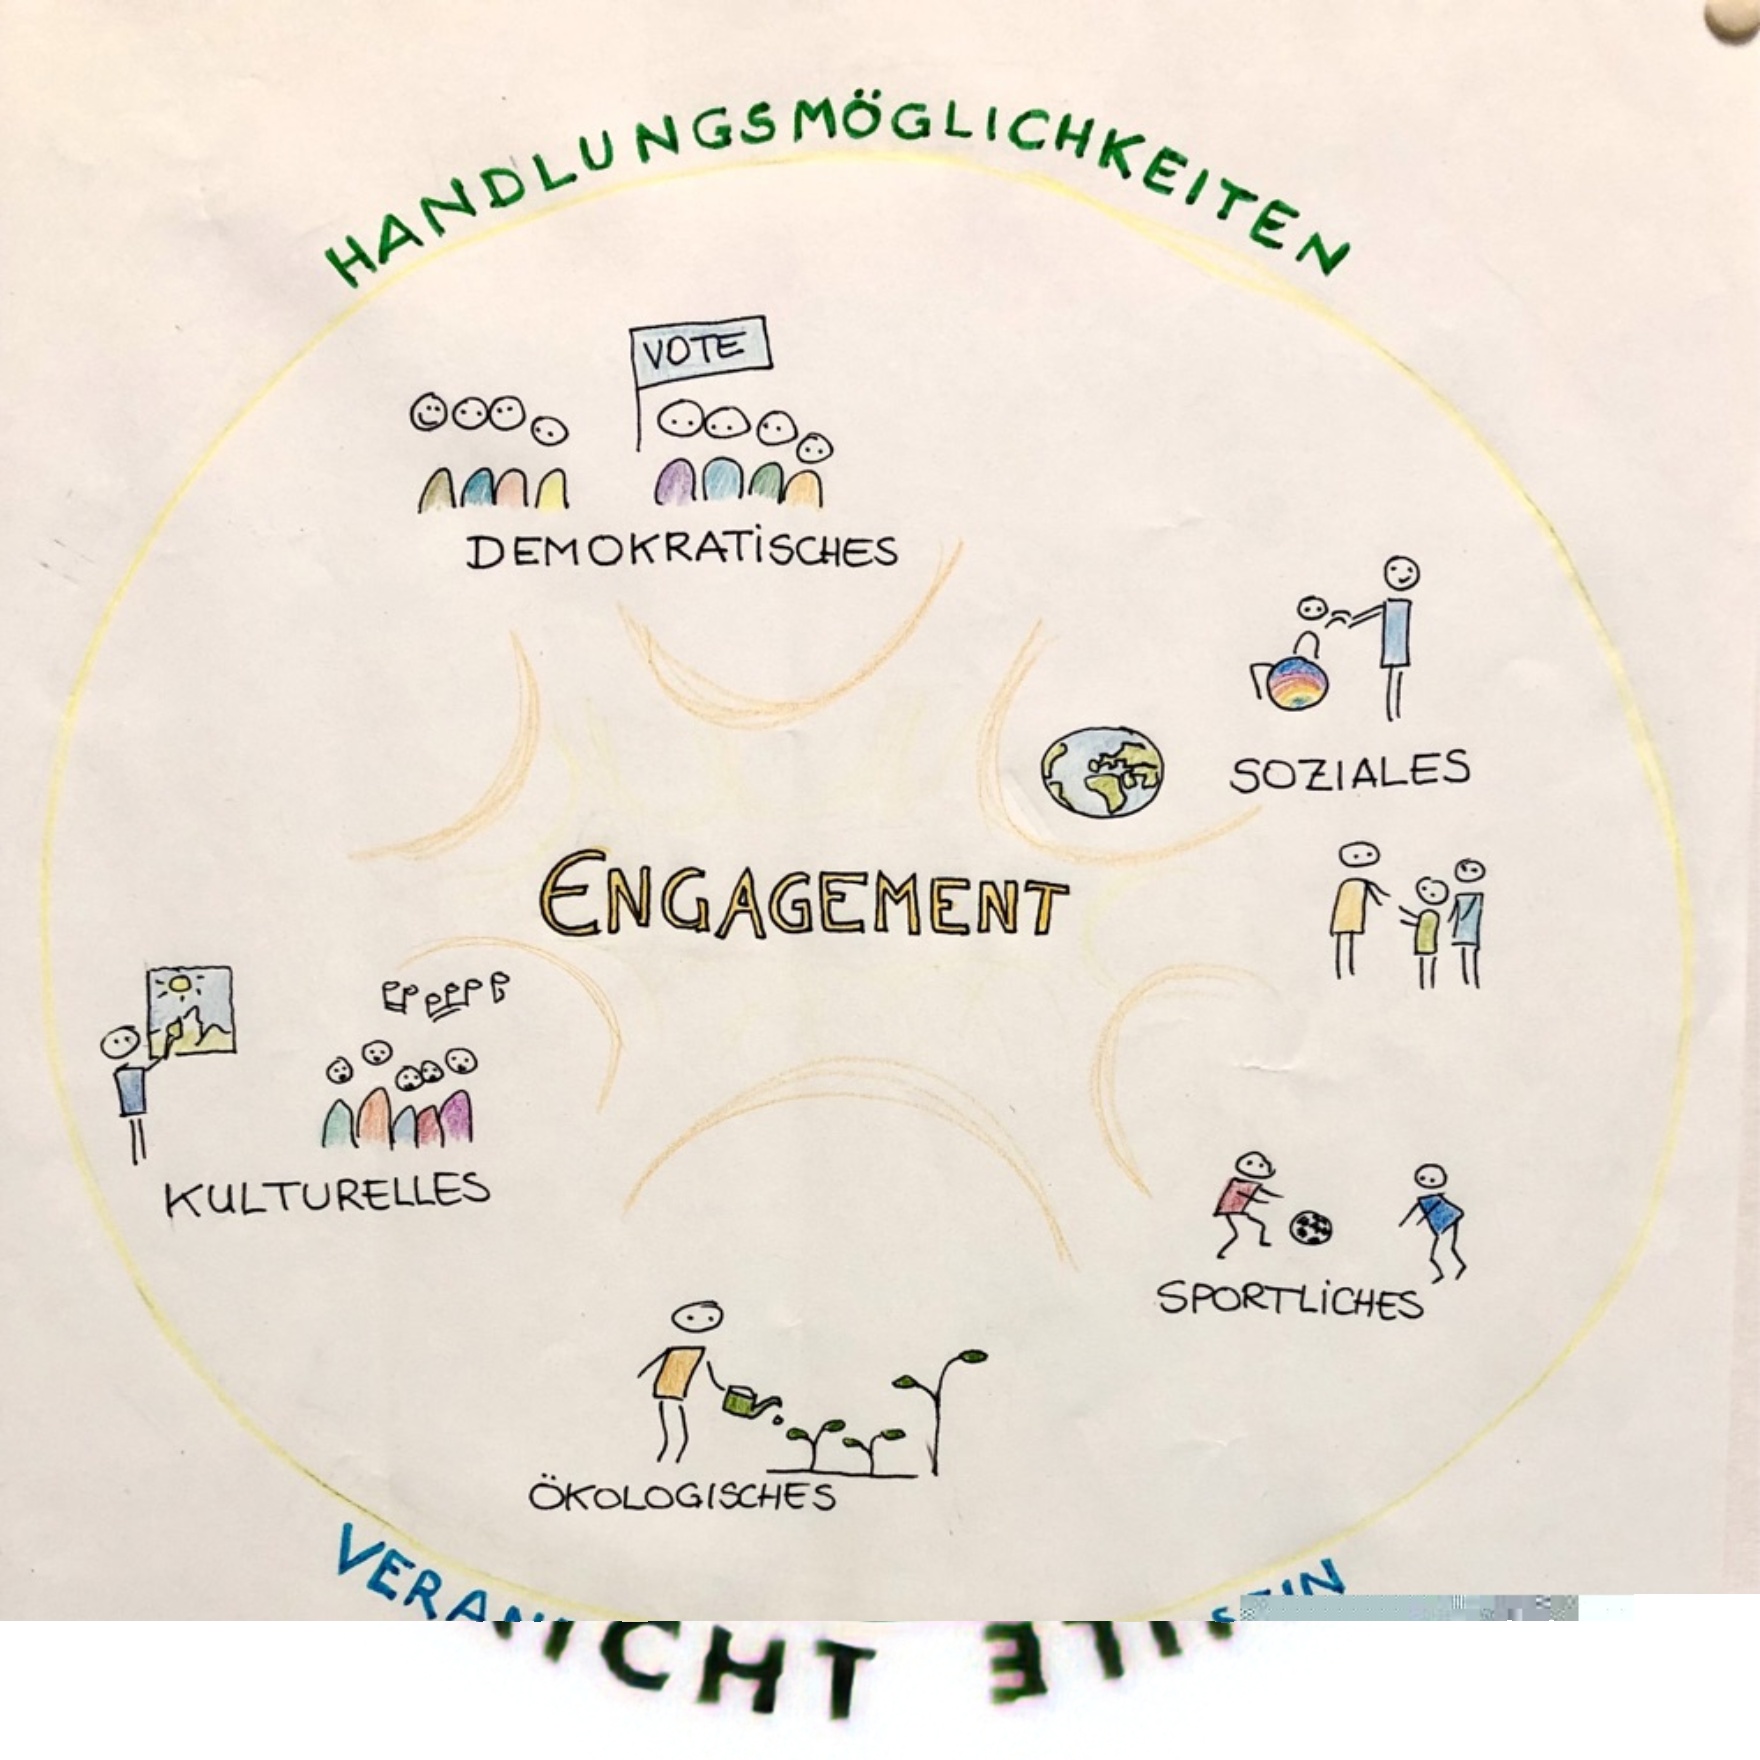 HANDLUNGSMÖGLICHKEITEN
VOTE
DEMOKRATISCHES
SOZIALES
ENGAGEMENT
KULTURELLES
SPORTLICHES
ÖKOLOGISCHES